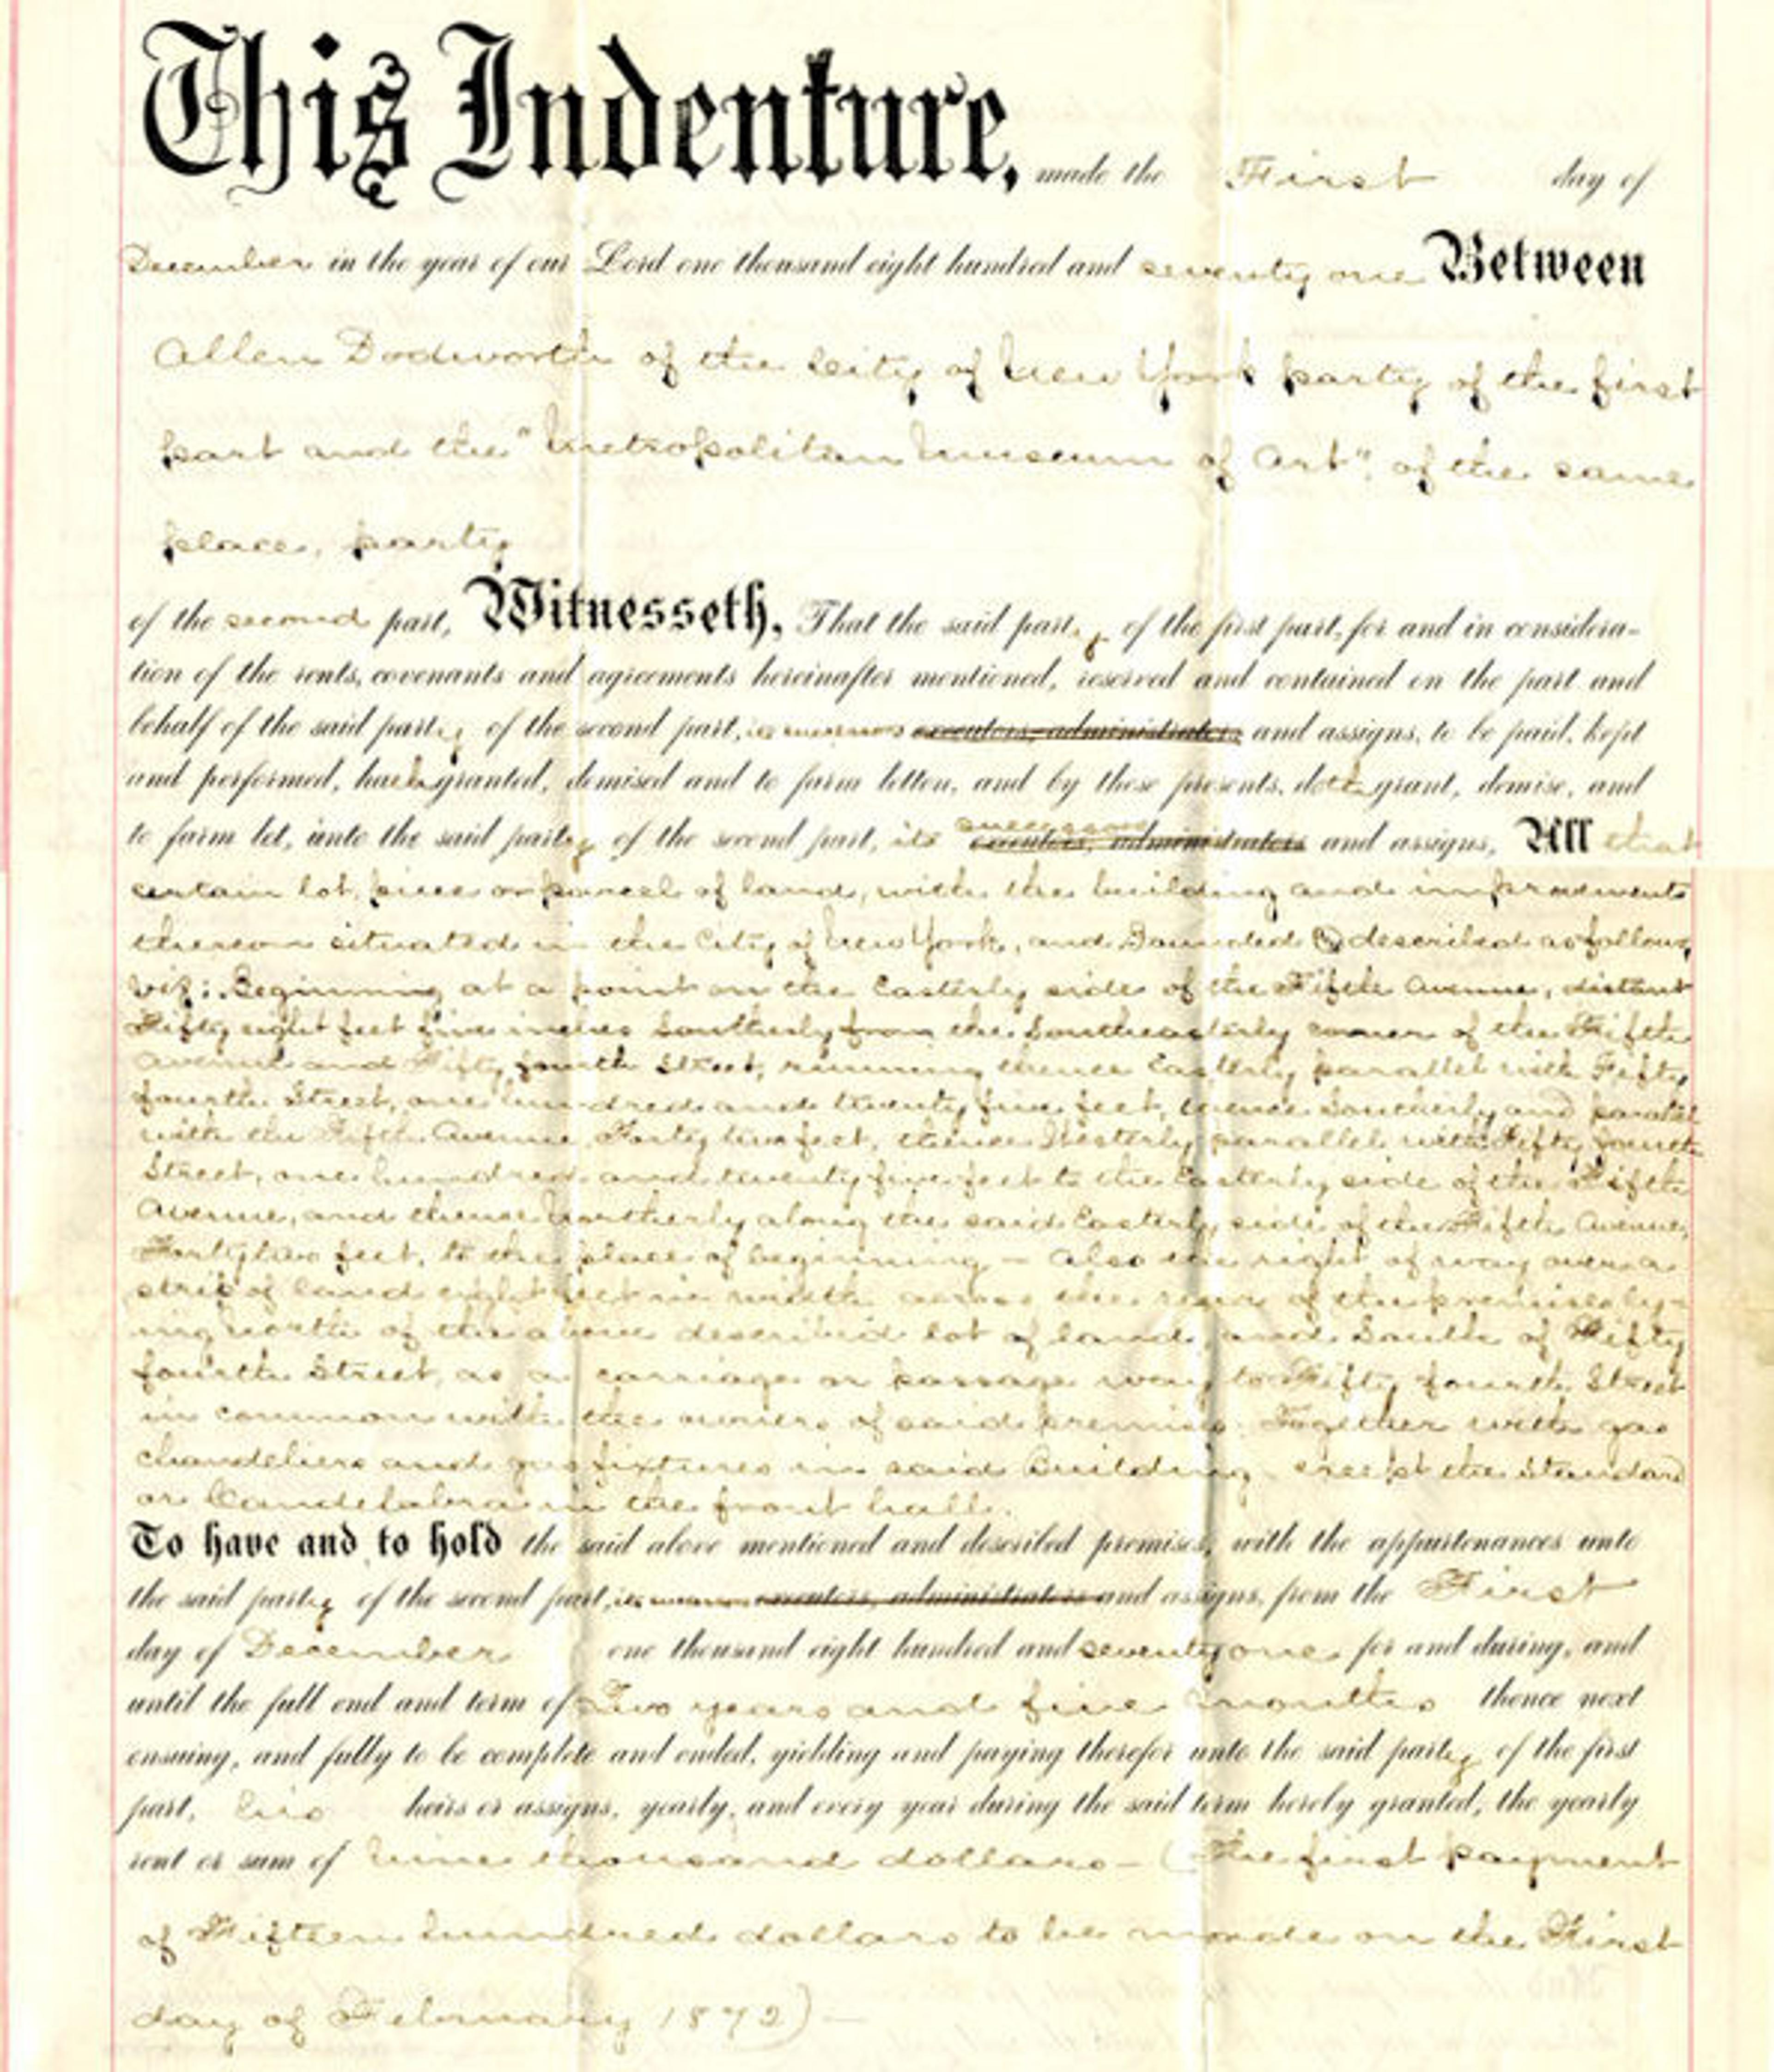 This Indenture, made the First day of
December in the year of our Lord one thousand eight hundred and seventy one Between
Allen Dodworth of the City of New York party of the first
part and the "Metropolitan Museum of Art", of the same
place, party
of the second part, Witnesseth, That the said party of the first part, for and in considera-
tion of the rents, covenants and agreements hereinafter mentioned, reserved and contained on the part and
behalf of the said party of the second part, its successors executors, administrators and assigns, to be paid, kept
and performed, hath granted, demised and to farm letten, and by these presents, doth grant, demise, and
to farm let, unto the said party of the second part, its successors executors, administrators and assigns, All that
certain lot, piece or parcel of land, with the building and improvements
thereon situated in the City of New York, and Bounded & described as follows,
viz: Beginning at a point on the Easterly side of the Fifth Avenue, distant
Fifty eight feet five inches Southerly from the Southeasterly corner of the Fifth
Avenue and Fifty fourth Street, running thence Easterly parallel with Fifty
fourth Street, one hundred and twenty five feet, thence Southerly and parallel
with the Fifth Avenue Forty two feet, thence Westerly parallel with Fifty fourth
Street, one hundred and twenty five feet to the Easterly side of the Fifth
Avenue, and thence Northerly along the said Easterly side of the Fifth Avenue,
Forty two feet, to the place of beginning – Also the right of way over a
strip of land eight feet in width across the rear of the premises ly-
ing north of the above described lot of land and South of Fifty
fourth Street, as a carriage or passage way to Fifty fourth Street
in common with the owners of said premises. Together with gas
chandeliers and gas fixtures in said Building, except the Standard
or Candelabra in the front hall.
To have and to hold the said above mentioned and described premises, with the appurtenances unto
the said party of the second part, its successors executors, administrators and assigns, from the First
day of December one thousand eight hundred and seventy one for and during, and
until the full end and term of Two years and five months thence next
ensuing, and fully to be complete and ended, yielding and paying therefor unto the said party of the first
part, his heirs or assigns, yearly, and every year during the said term hereby granted, the yearly
rent or sum of Nine thousand dollars – (The first payment
of Fifteen hundred dollars to be made on the First
day of February 1872) –